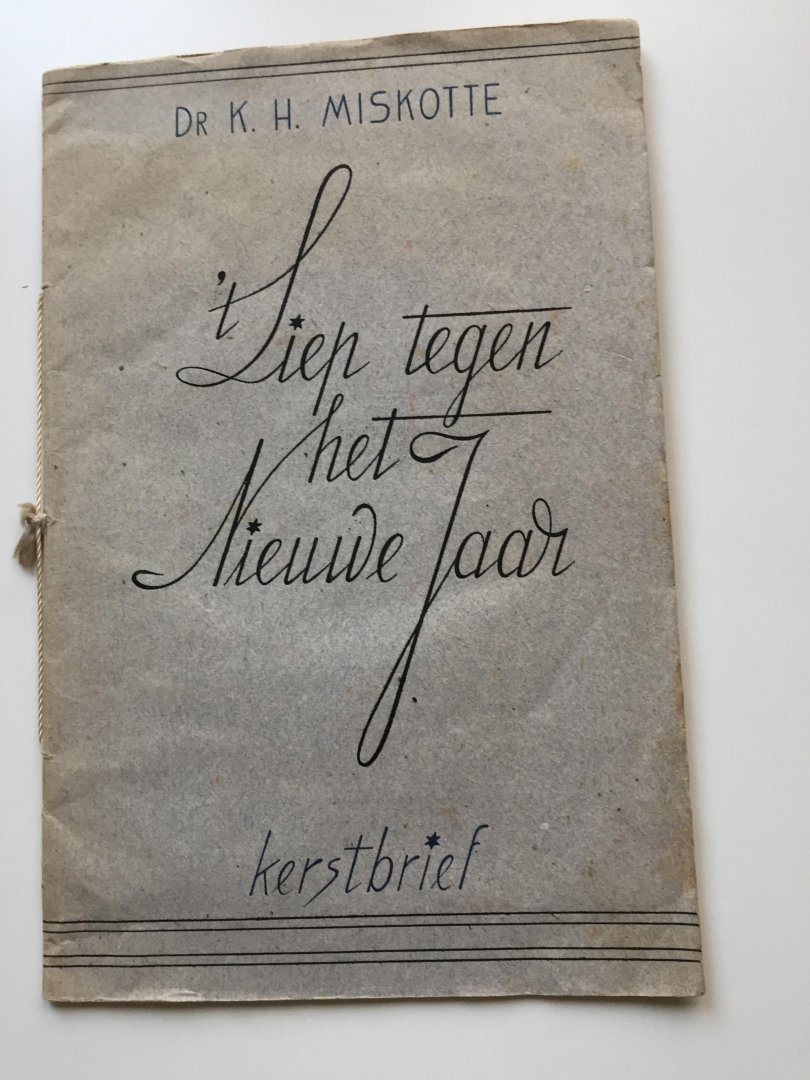 Dr K. H. MISKOTTE
't Liep tegen
het
Nieuwe Jaar
kerstbrief